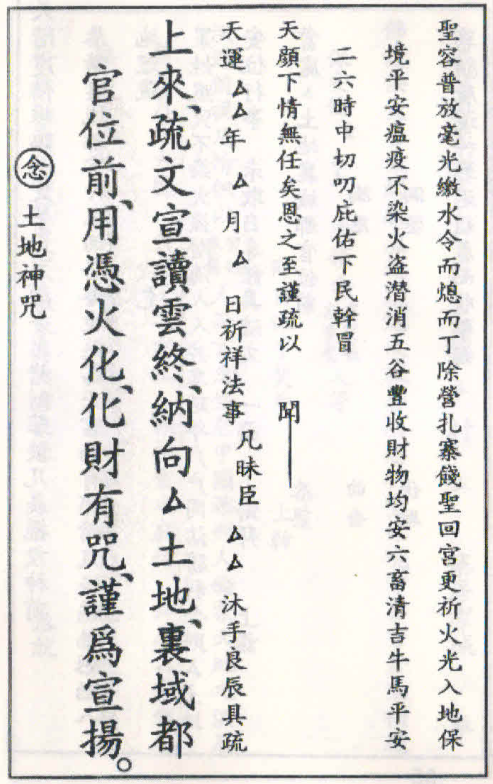 聖容普放毫光繳水令而熄而丁除營扎寨餞聖回宮更祈火光入地保
境平安瘟疫不染火盗潜消五谷豐收財物均安六畜清吉牛馬平安
二六時中切叨庇佑下民幹冒
天顔下情無任矣恩之至謹疏以 聞
天運厶厶年 厶 月 厶 日祈祥法事 凡昧臣 厶厶 沐手良辰具疏
上來、疏文宣讀雲終、納向厶土地、裏域都
官位前、用憑火化、化財有咒、謹爲宣揚。
念 土地神咒